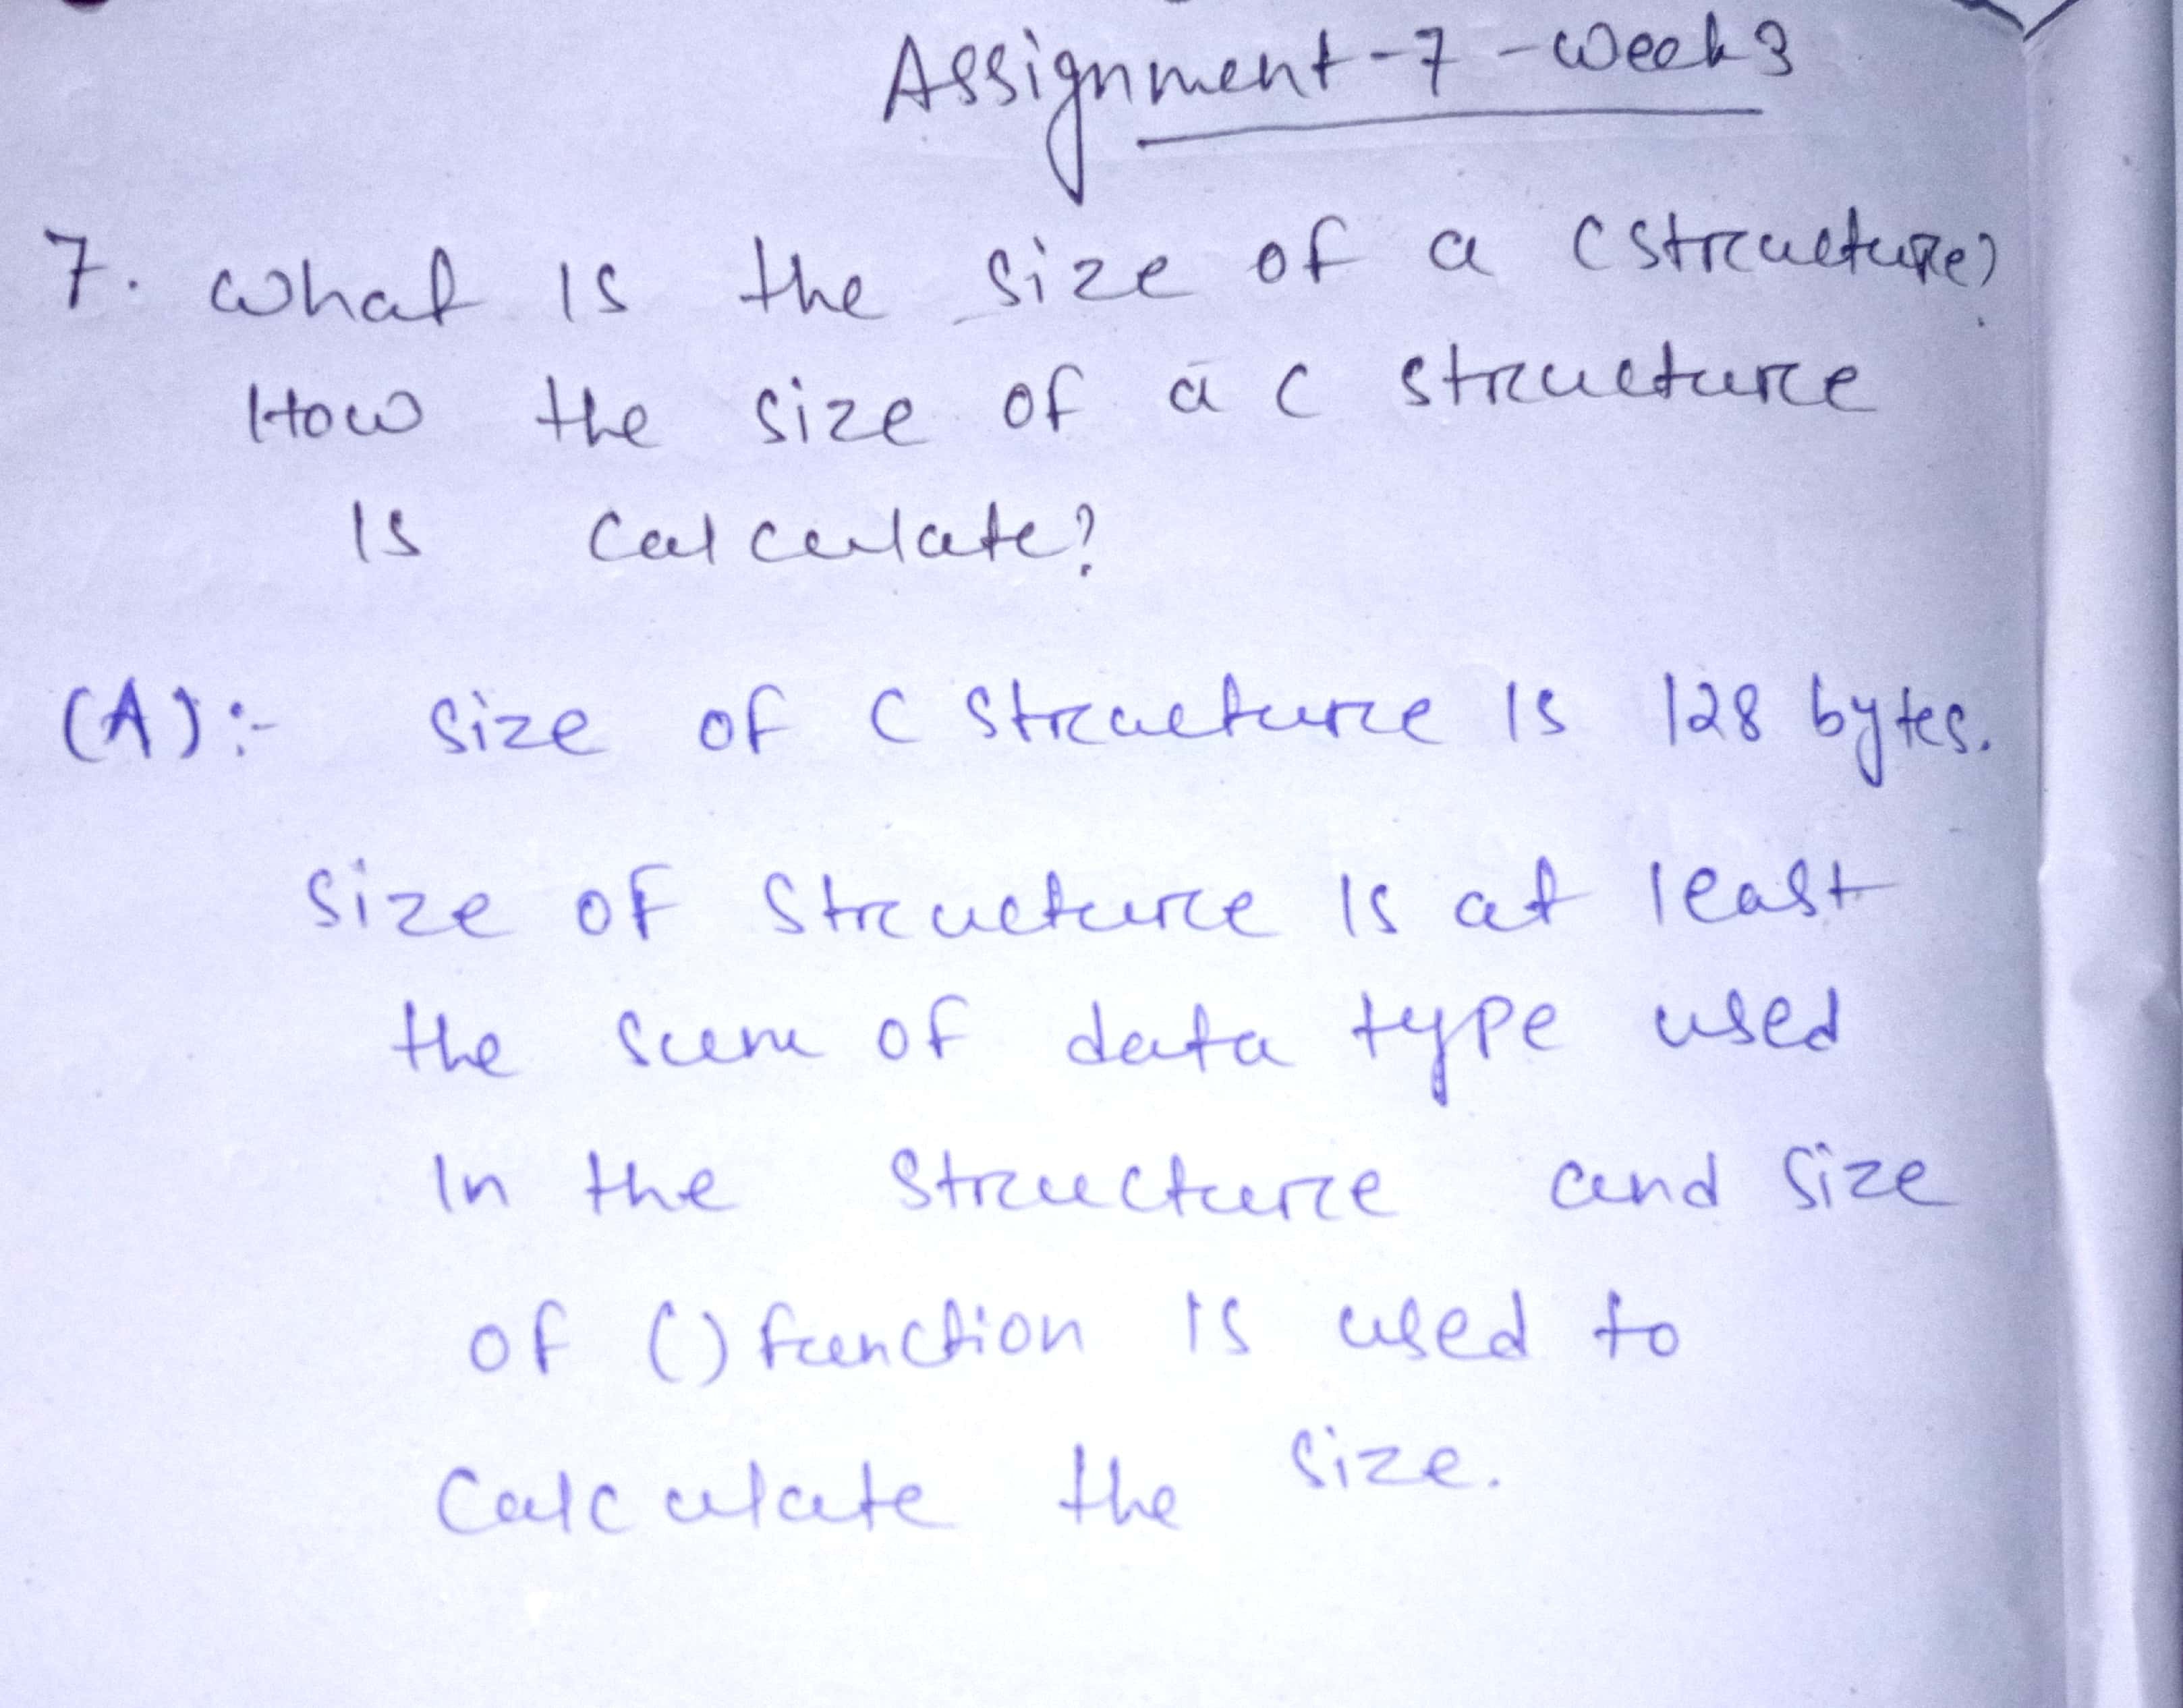 Assignment-7-week3
7. what is the size of a C structure?
How the size of a C structure
is calculate?
(A):- size of C structure is 128 bytes.
size of structure is at least
the sum of data type used
In the structure and size
of () function is used to
Calculate the size.